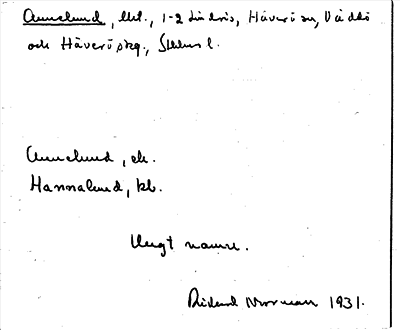 Annelund, lht., 1-2 Lindris, Häverö sn, Väddö
och Häverö skg., Sthlms l.
Annelund, ek.
Hannalund, kb.
Ungt namn.
Rickard Norrman 1931.